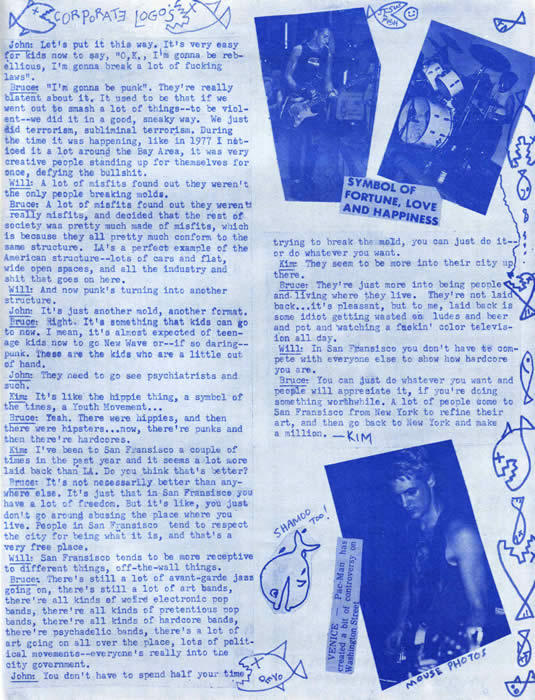 CORPORATE LOGOS
John: Let's put it this way. It's very easy
for kids now to say, "O,K., I'm gonna be reb-
ellious, I'm gonna break a lot of fucking
laws".
Bruce: "I'm gonna be punk". They're really
blatent about it. It used to be that if we
went out to smash a lot of things--to be viol-
ent--we did it in a good, sneaky way. We just
did terrorism, subliminal terrorism. During
the time it was happening, like in 1977 I not-
iced it a lot around the Bay Area, it was very
creative people standing up for themselves for
once, defying the bullshit.
Will: A lot of misfits found out they weren't
the only people breaking molds.
Bruce: A lot of misfits found out they weren't
really misfits, and decided that the rest of
society was pretty much made of misfits, which
is because they all pretty much conform to the
same structure. LA's a perfect example of the
American structure--lots of cars and flat,
wide open spaces, and all the industry and
shit that goes on here.
Will: And now punk's turning into another
structure.
John: It's just another mold, another format.
Bruce: Right. It's something that kids can go
to now. I mean, it's almost expected of teen-
age kids now to go New Wave or--if so daring--
punk. These are the kids who are a little out
of hand.
John: They need to go see psychiatrists and
such.
Kim: It's like the hippie thing, a symbol of
the times, a Youth Movement...
Bruce: Yeah. There were hippies, and then
there were hipsters...now, there're punks and
then there're hardcores.
Kim: I've been to San Fransisco a couple of
times in the past year and it seems a lot more
laid back than LA. Do you think that's better?
Bruce: It's not necessarily better than any-
where else. It's just that in San Fransisco you
have a lot of freedom. But it's like, you just
don't go around abusing the place where you
live. People in San Fransisco tend to respect
the city for being what it is, and that's a
very free place.
Will: San Francisco tends to be more receptive
to different things, off-the-wall things.
Bruce: There's still a lot of avant-garde jazz
going on, there's still a lot of art bands,
there're all kinds of weird electronic pop
bands, there're all kinds of pretentious pop
bands, there're all kinds of hardcore bands,
there're psychadelic bands, there's a lot of
art going on all over the place, lots of polit-
ical movements--everyone's really into the
city government.
John: You don't have to spend half your time
JESUS FISH
SYMBOL OF
FORTUNE, LOVE
AND HAPPINESS
trying to break the mold, you can just do it--
or do whatever you want.
Kim: They seem to be more into their city up
there.
Bruce: They're just more into being people
and living where they live. They're not laid
back...it's pleasant, but to me, laid back is
some idiot getting wasted on ludes and beer
and pot and watching a fuckin' color televis-
ion all day.
Will: In San Fransisco you don't have to com-
pete with everyone else to show how hardcore
you are.
Bruce: You can just do whatever you want and
people will appreciate it, if you're doing
something worthwhile. A lot of people come to
San Fransisco from New York to refine their
art, and then go back to New York and make
a million. —KIM
SHAMOO TOO!
VENICE — Pac-Man has
created a bit of controversy on
Washington Street
MOUSE PHOTOS
DEVO